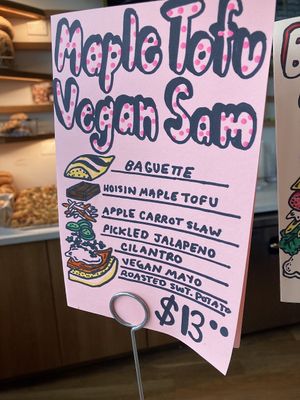 Maple Tofu
Vegan Sam
BAGUETTE
HOISIN MAPLE TOFU
APPLE CARROT SLAW
PICKLED JALAPENO
CILANTRO
VEGAN MAYO
ROASTED SWT. POTATO
$13.00